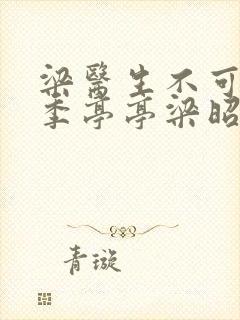 梁醫生不可
季亭亭梁昭
青璇